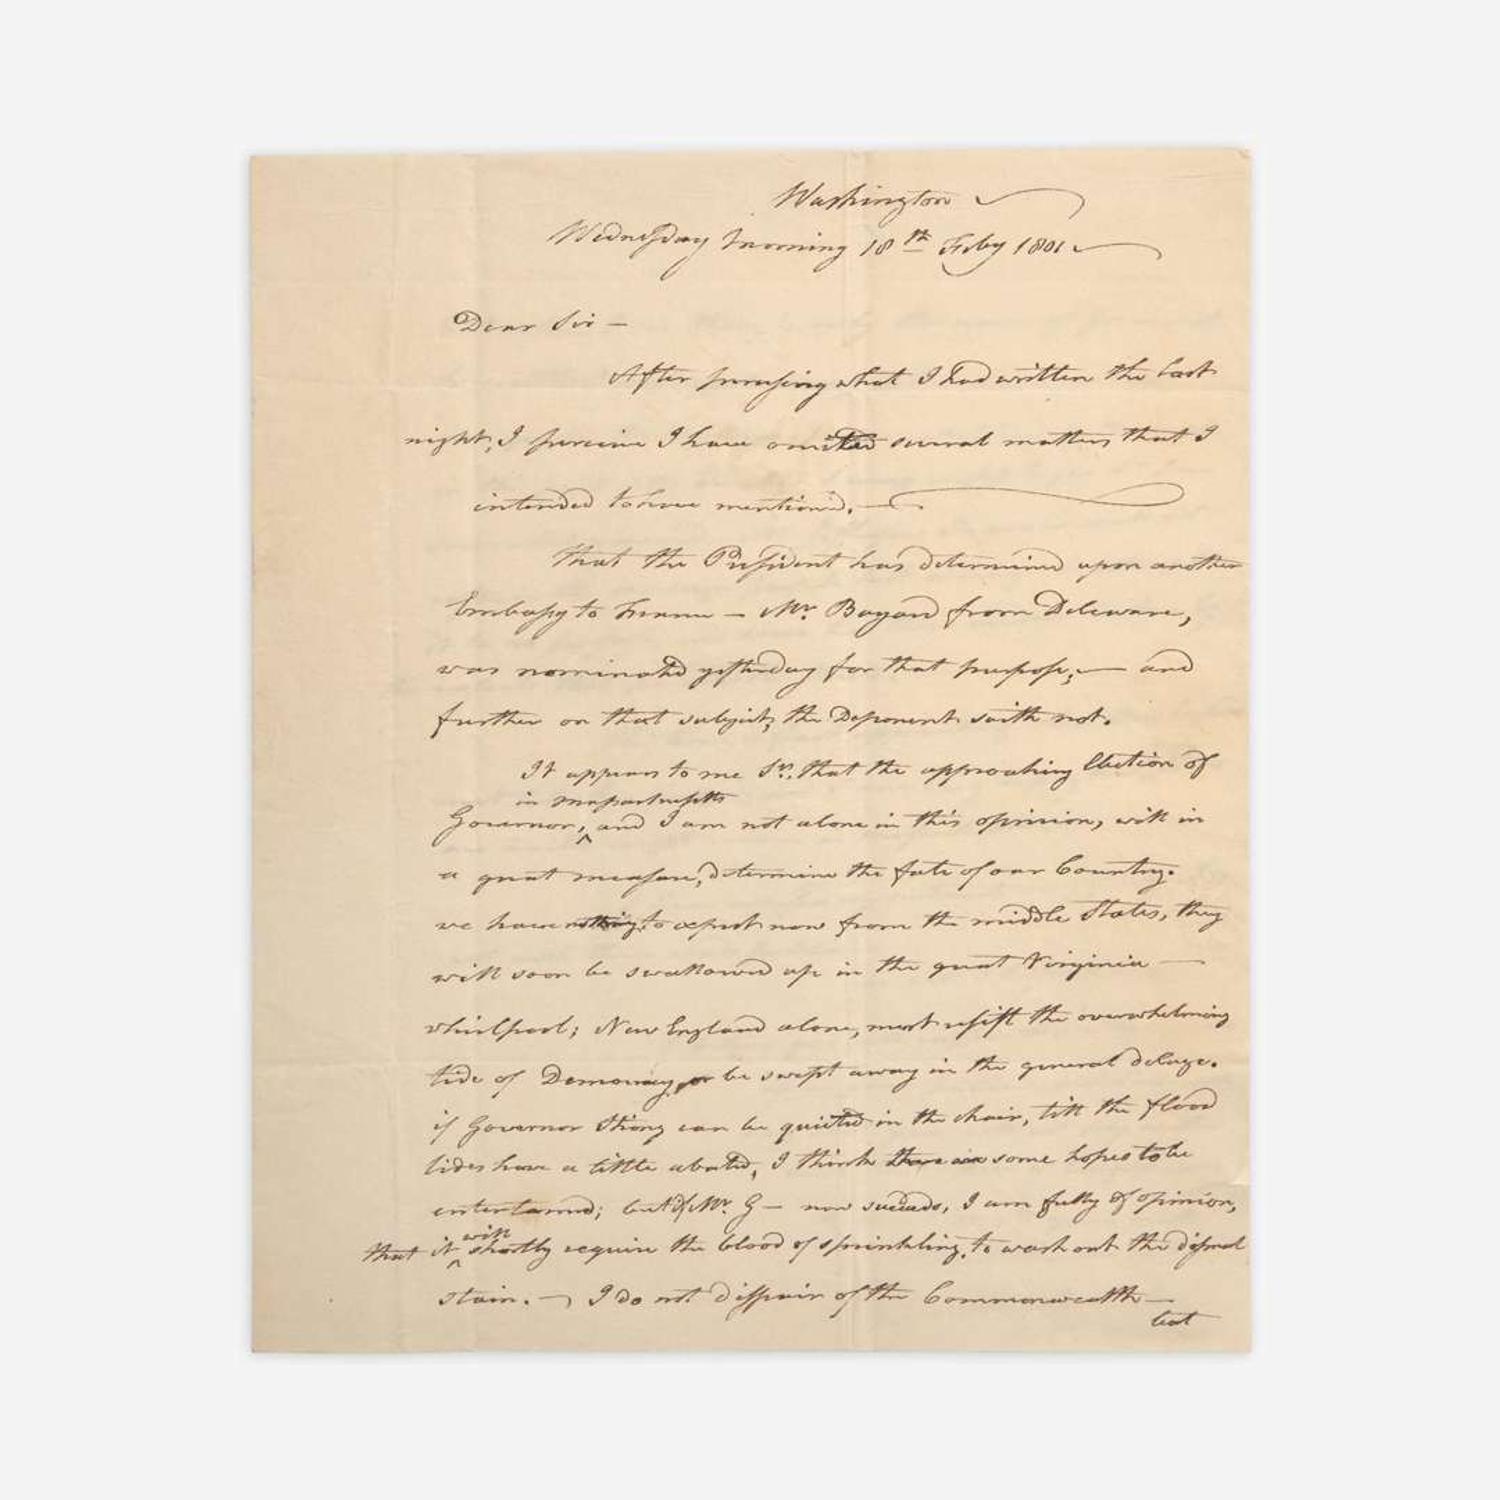 Washington
Wednesday morning 18th Feby 1801
Dear Sir —
After perusing what I had written the last
night, I perceive I have omitted several matters that I
intended to have mention'd. —
That the President has determined upon another
Embassy to France — Mr. Bayard from Deleware,
was nominated yesterday for that purpose, — and
further on that subject, the Deponent saith not.
It appears to me Sr. that the approaching Election of
in Massachusetts
Governor, ^ and I am not alone in this opinion, will in
a great measure, determine the fate of our Country.
we have nothing to expect now from the middle States, they
will soon be swallowed up in the great Virginia —
whirlpool; New England alone, must resist the overwhelming
tide of Democracy, or be swept away in the general deluge.
if Governor Strong can be quieted in the chair, till the flood
tides have a little abated, I think there are some hopes to be
entertained; but if Mr. G — now succeeds, I am fully of opinion,
will
that it ^ shortly require the blood of sprinkling, to wash out the dismal
stain. — I do not dispair of the Commonwealth —
but